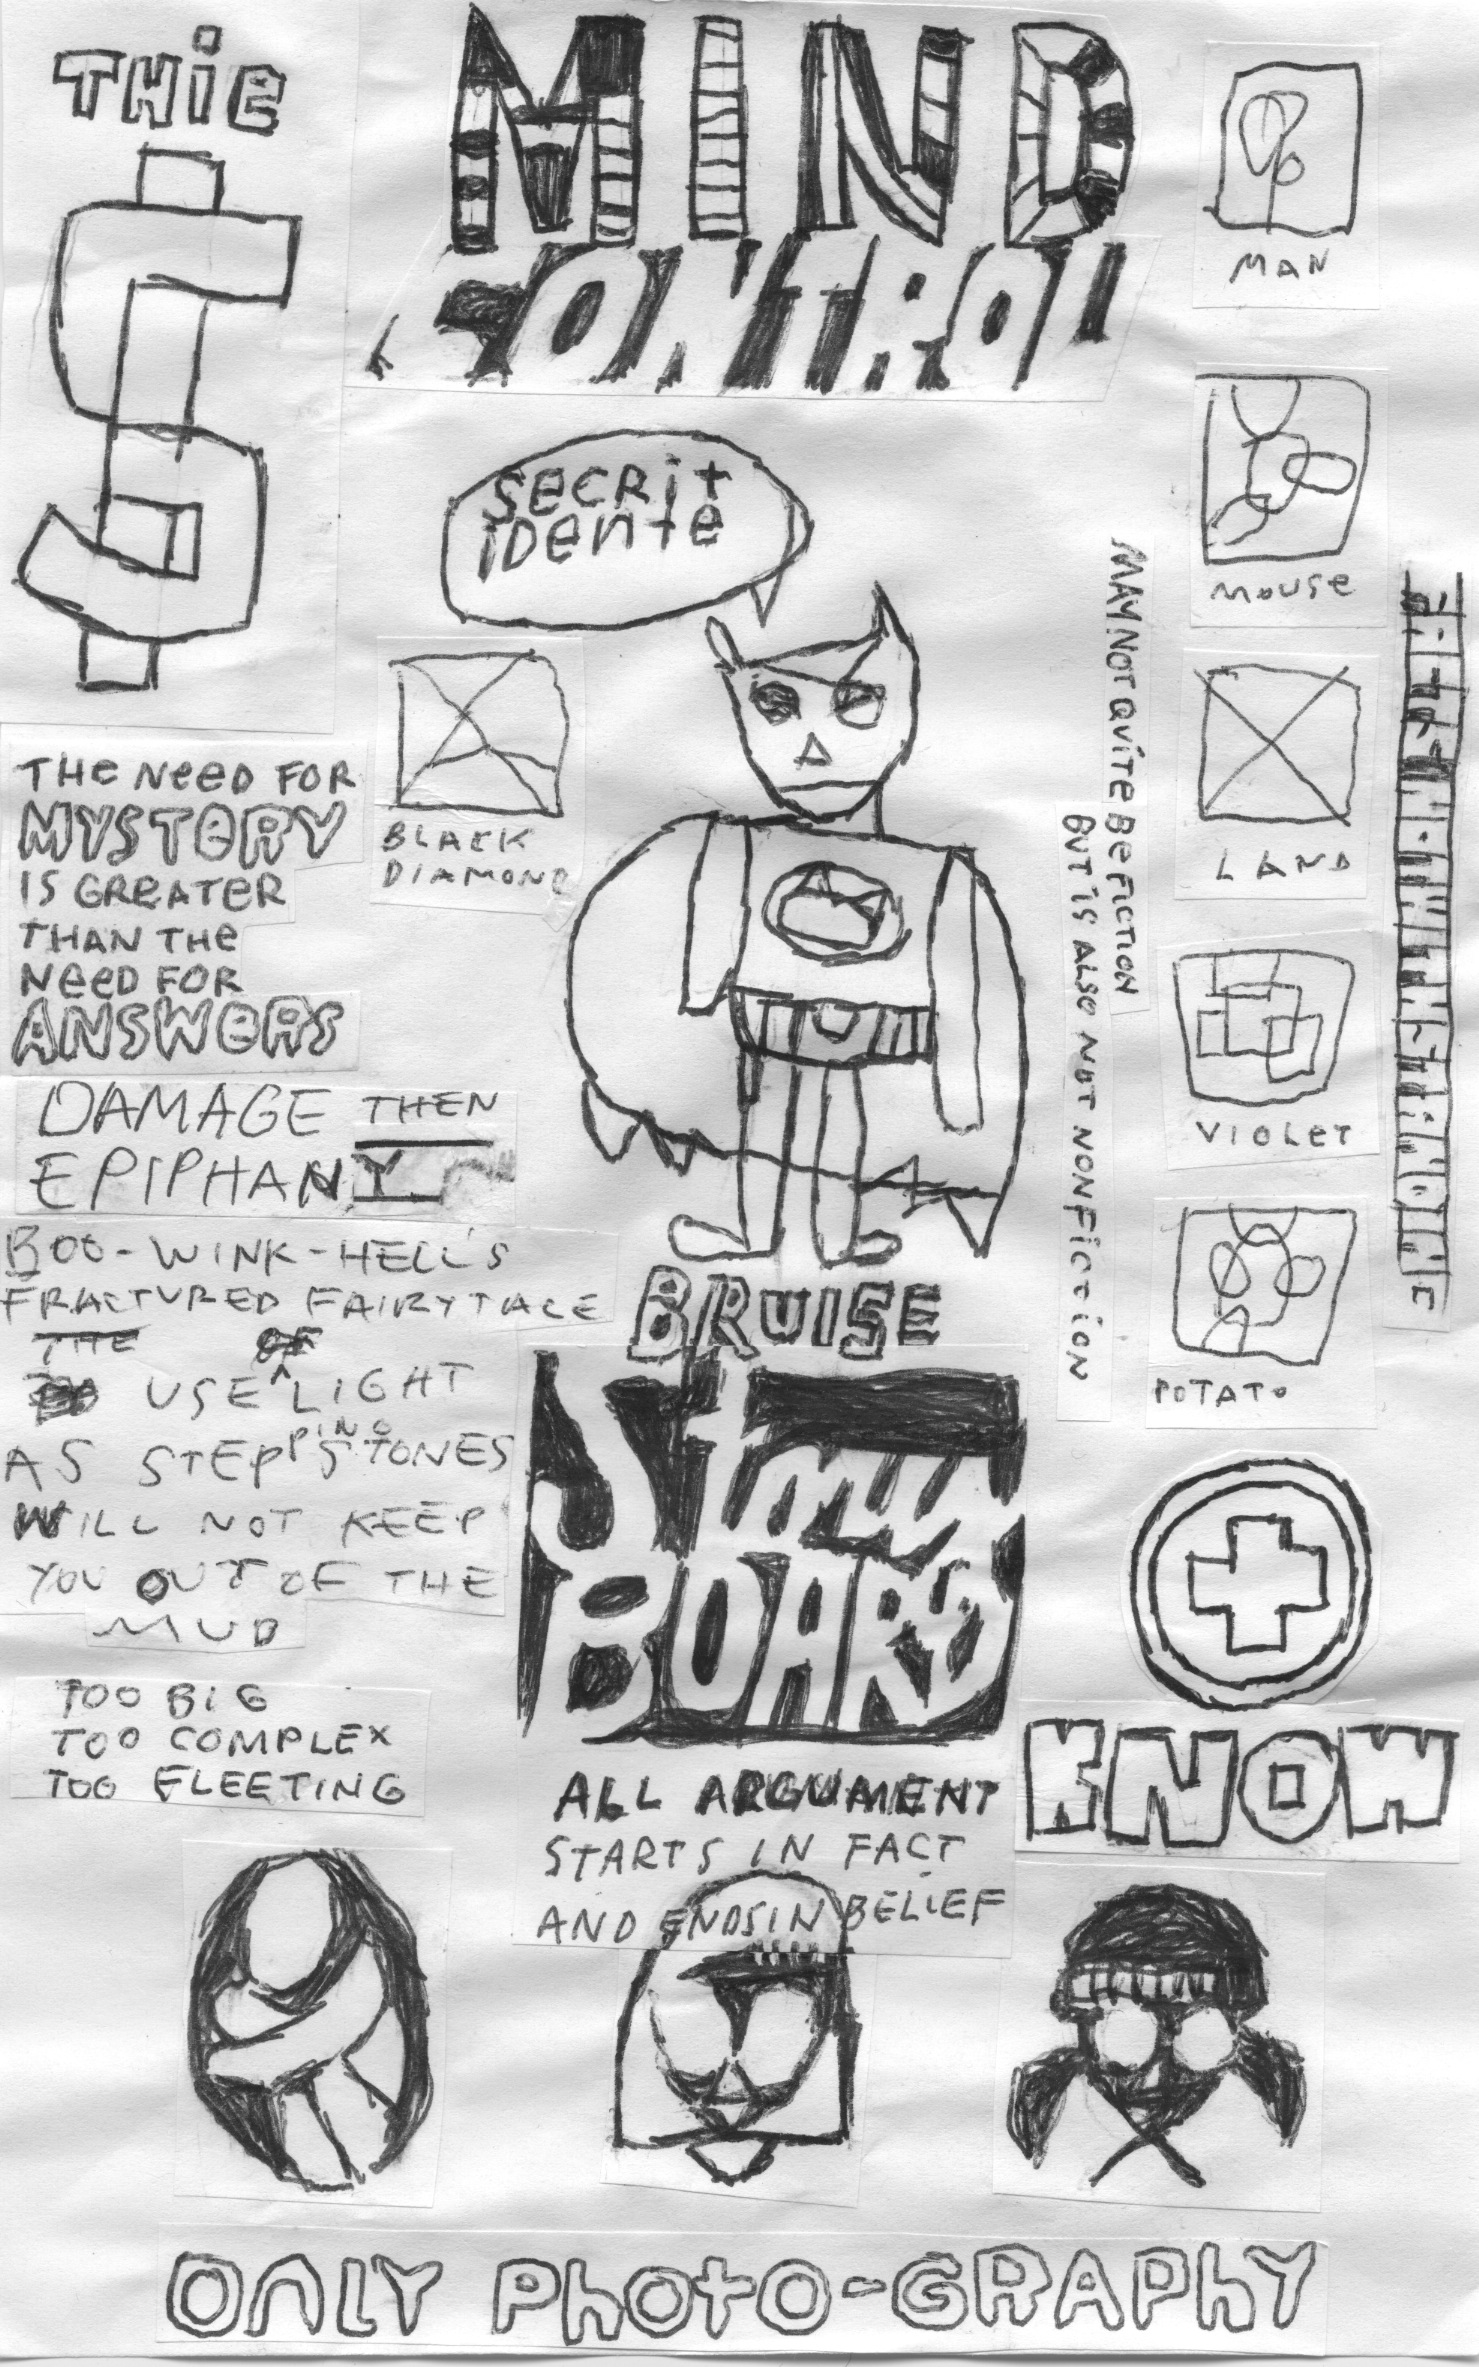 THiE
MIND
CONTROL
MAN
SECRiT
iDENTE
MOUSE
MAY NOT QUiTE BE FiCTiON
BUT iS ALSO NOT NONFiCTiON
BLACK
DIAMOND
LAND
THE NEED FOR
MYSTERY
IS GREATER
THAN THE
NEED FOR
ANSWERS
VIOLET
DAMAGE THEN
EPIPHANY
BOO-WINK-HELL'S
FRACTURED FAIRYTALE
THE USE OF LIGHT
AS STEPPING STONES
WILL NOT KEEP
YOU OUT OF THE
MUD
POTATO
BRUISE
BOARD
TOO BIG
TOO COMPLEX
TOO FLEETING
KNOW
ALL ARGUMENT
STARTS IN FACT
AND ENDS IN BELIEF
ONLY PHOTO-GRAPHY